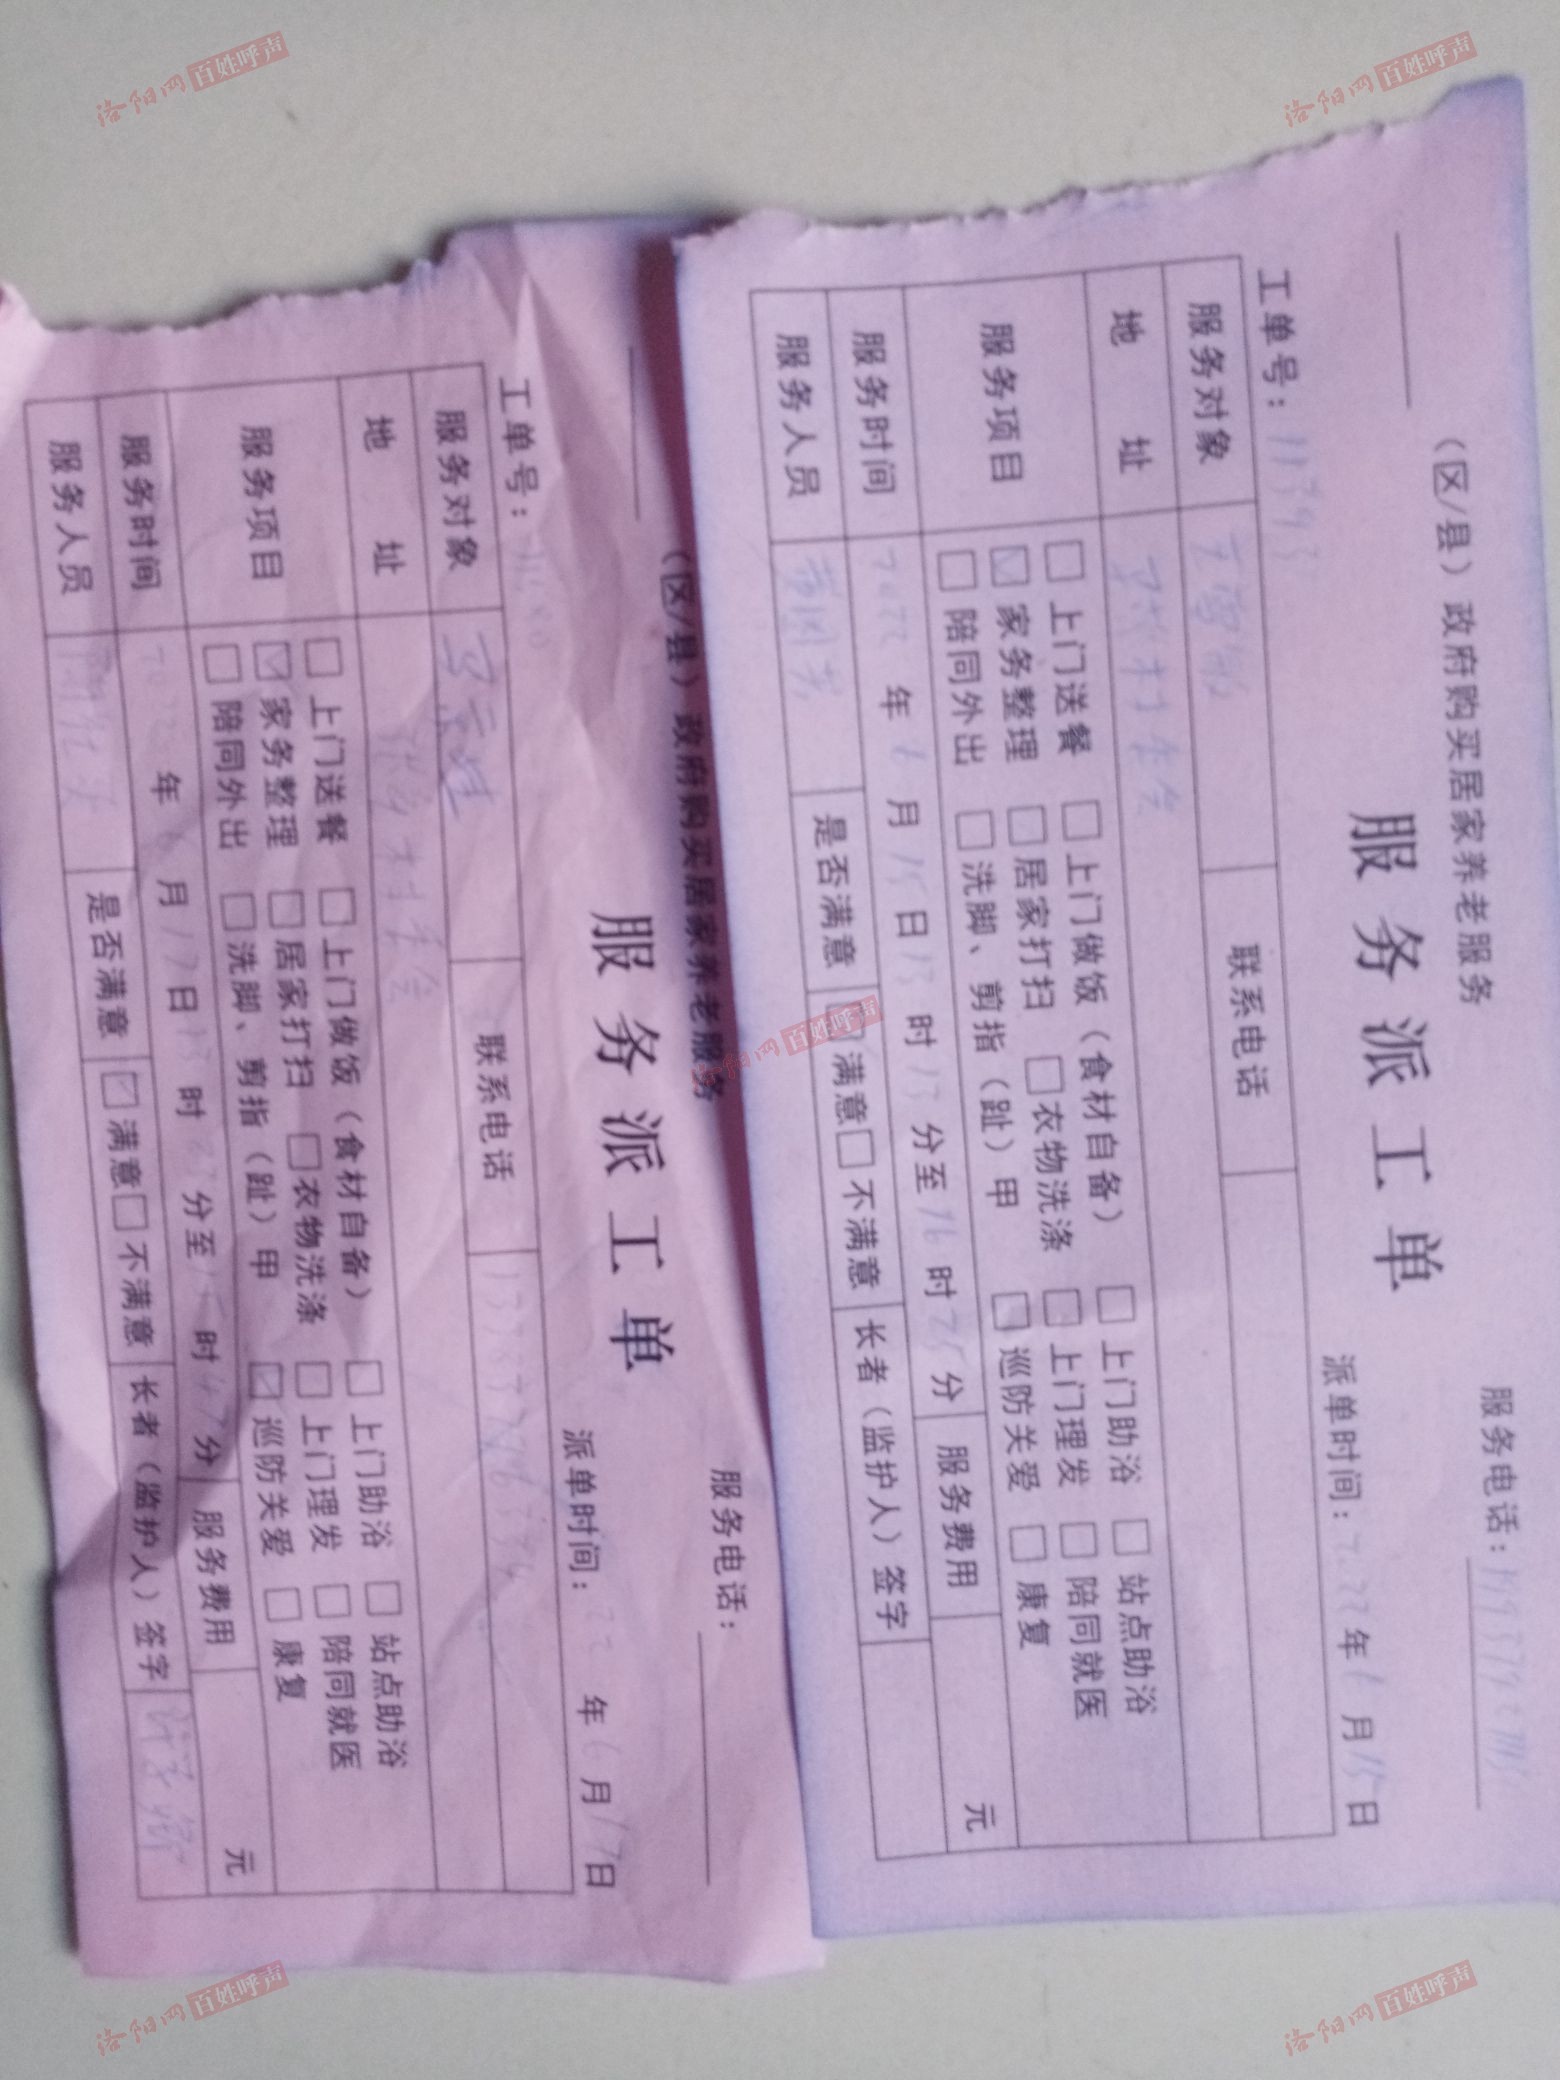 洛阳网 百姓呼声
洛阳网 百姓呼声
（区/县）政府购买居家养老服务
服务派工单
服务电话：
工单号：
派单时间： 年 6 月 15 日
服务对象
联系电话
地 址
服务项目
□上门送餐 □上门做饭（食材自备） □上门助浴 □站点助浴
☑家务整理 □居家打扫 □衣物洗涤 □上门理发 □陪同就医
□陪同外出 □洗脚、剪指（趾）甲 ☑巡防关爱 □康复
服务时间 2022 年 6 月 15 日 13 时 13 分至 16 时 25 分 服务费用 元
服务人员 是否满意 ☑满意□不满意 长者（监护人）签字
（区/县）政府购买居家养老服务
服务派工单
服务电话：
工单号：
派单时间： 22 年 6 月 17 日
服务对象
联系电话
地 址
服务项目
□上门送餐 □上门做饭（食材自备） □上门助浴 □站点助浴
☑家务整理 □居家打扫 □衣物洗涤 □上门理发 □陪同就医
□陪同外出 □洗脚、剪指（趾）甲 ☑巡防关爱 □康复
服务时间 2022 年 6 月 17 日 13 时 分至 15 时 47 分 服务费用 元
服务人员 是否满意 ☑满意□不满意 长者（监护人）签字
洛阳网 百姓呼声
洛阳网 百姓呼声
洛阳网 百姓呼声